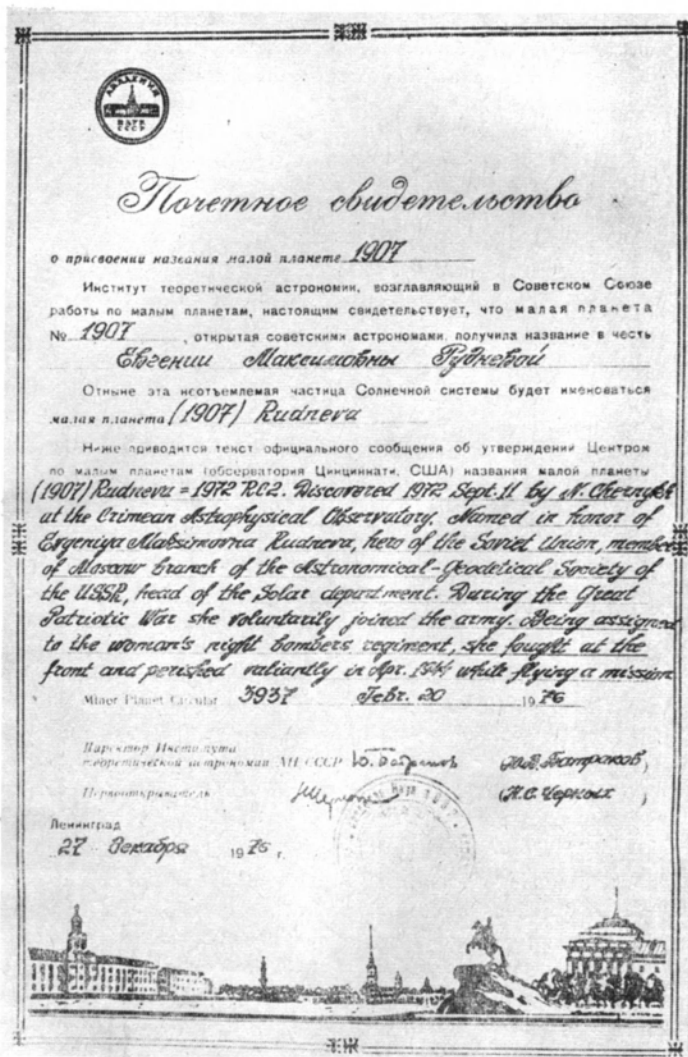 АКАДЕМИЯ
НАУК
СССР
Почетное свидетельство
о присвоении названия малой планете 1907
Институт теоретической астрономии, возглавляющий в Советском Союзе
работы по малым планетам, настоящим свидетельствует, что малая планета
№ 1907, открытая советскими астрономами, получила название в честь
Евгении Максимовны Рудневой
Отныне эта неотъемлемая частица Солнечной системы будет именоваться
малая планета (1907) Rudneva
Ниже приводится текст официального сообщения об утверждении Центром
по малым планетам (обсерватория Цинциннати, США) названия малой планеты
(1907) Rudneva = 1972 RC2. Discovered 1972 Sept. 11 by N. Chernykh
at the Crimean Astrophysical Observatory. Named in honor of
Evgeniya Maksimovna Rudneva, hero of the Soviet Union, member
of Moscow branch of the Astronomical-Geodetical Society of
the USSR, head of the Solar department. During the Great
Patriotic War she voluntarily joined the army. Being assigned
to the woman's night bombers regiment, she fought at the
front and perished valiantly in Apr. 1944 while flying a mission
Minor Planet Circular 3937 Febr. 20 1976
Директор Института
теоретической астрономии АН СССР Ю. Батраков (Ю.В. Батраков)
Первооткрыватель (Н.С. Черных)
Ленинград
27 декабря 1976 г.